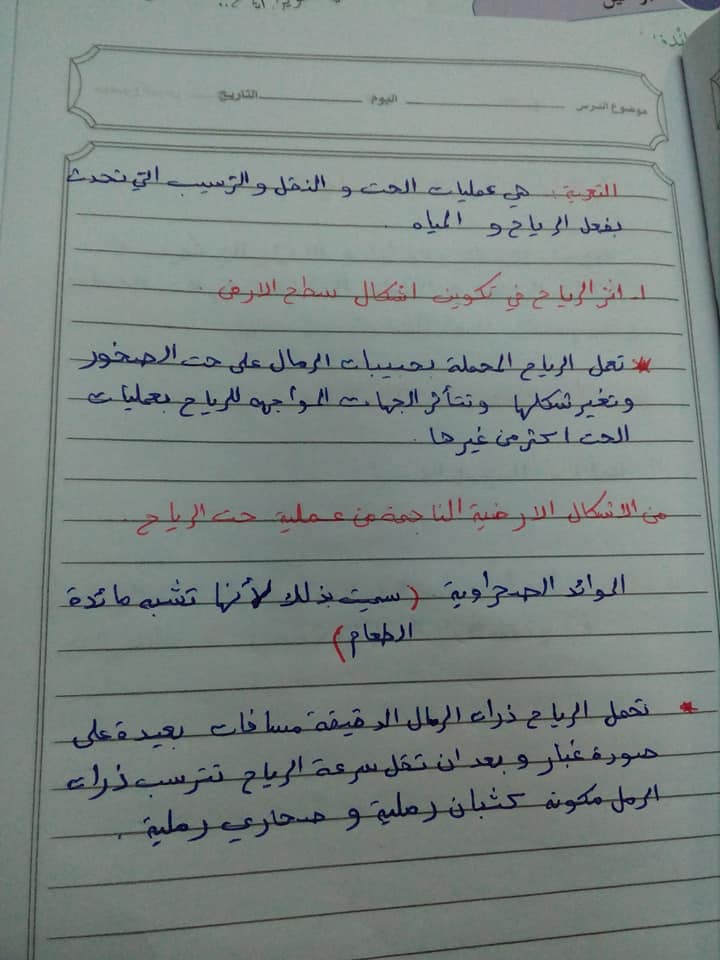 موضوع الدرس ـــــــــ اليوم ـــــــــ التاريخ ـــــــــ
التعرية: هي عمليات الحت و النقل و الترسيب التي تحدث
بفعل الرياح و المياه .
١- اثر الرياح في تكوين اشكال سطح الارض .
* تعمل الرياح المحملة بحبيبات الرمال على حت الصخور
و تغير شكلها و تتأثر الجهات المواجهه للرياح بعمليات
الحت اكثر من غيرها .
من الاشكال الارضية الناجمة من عملية حت الرياح .
الموائد الصحراوية (سميت بذلك لأنها تشبه مائدة
الطعام)
* تحمل الرياح ذرات الرمال الدقيقة مسافات بعيدة على
صورة غبار و بعد ان تقل سرعة الرياح تترسب ذرات
الرمل مكونه كثبان رملية و صحاري رملية .